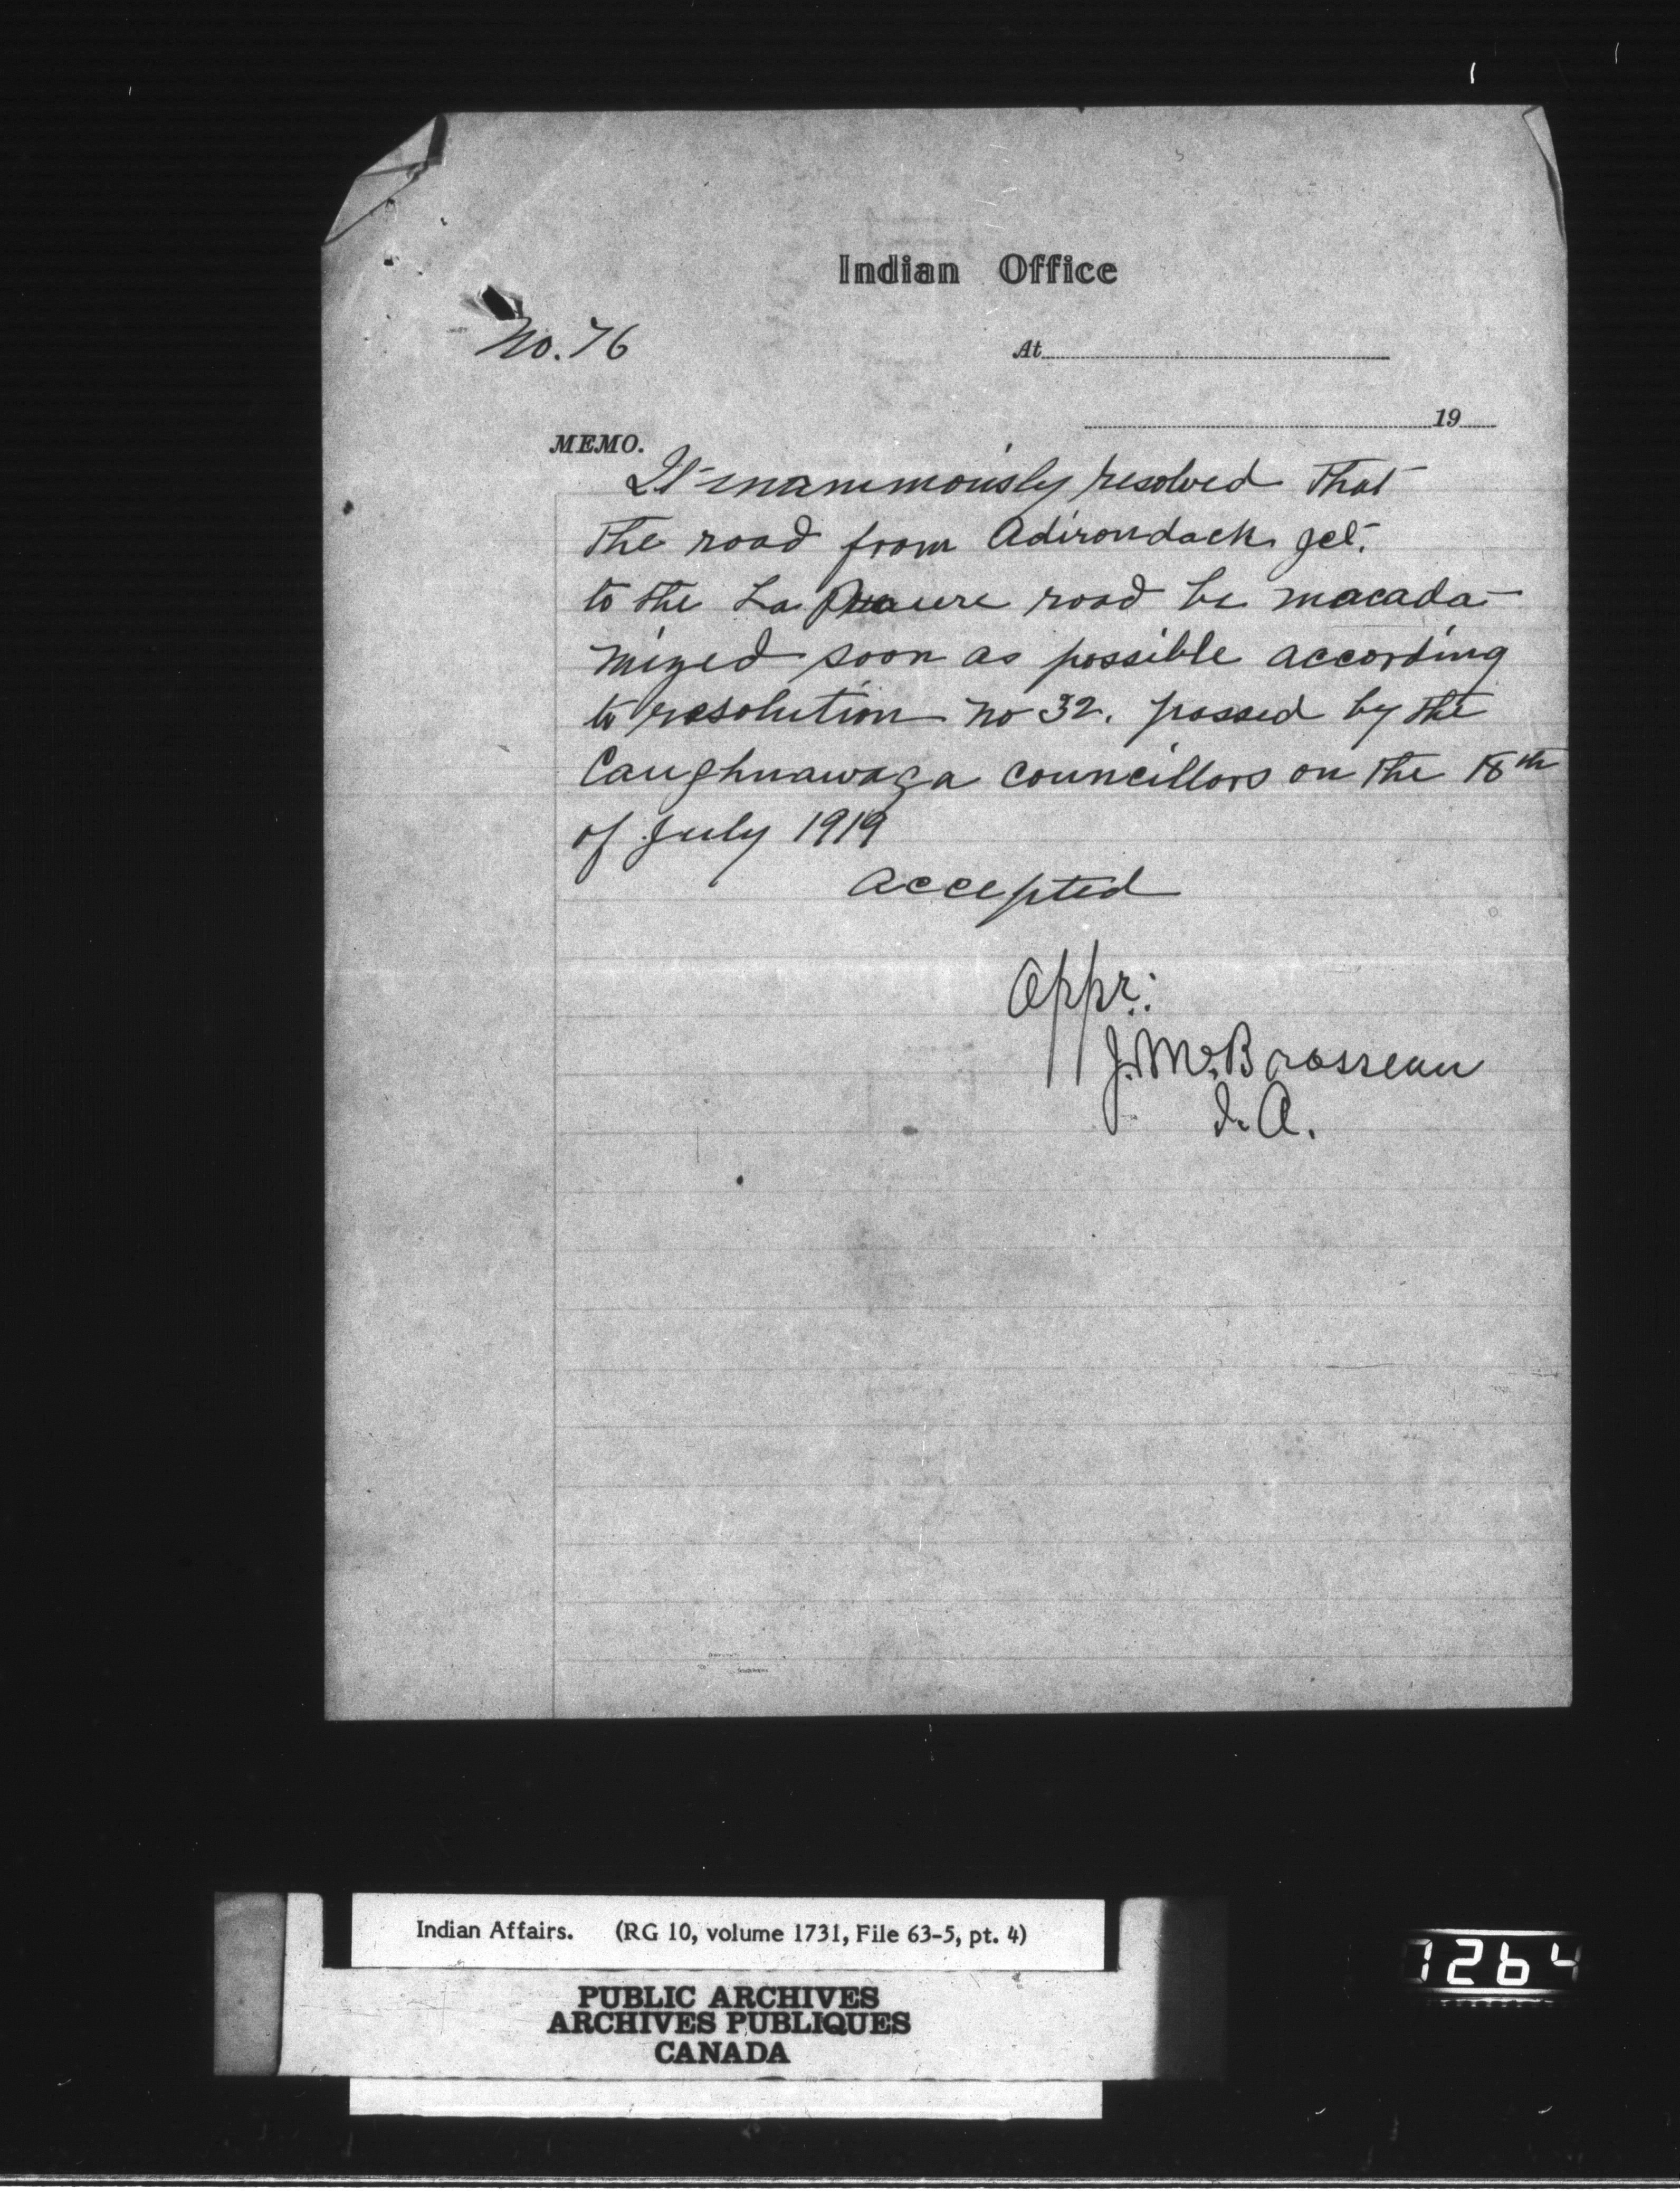 Indian Office
No. 76
At
19
MEMO.
It unanimously resolved that
the road from Adirondack Jct.
to the La road be macada-
mized soon as possible according
to resolution No 32. passed by the
Caughnawaga councillors on the 18th
of July 1919
accepted
Appr.:
J. M. Brosseau
I. A.
Indian Affairs. (RG 10, volume 1731, File 63-5, pt. 4)
PUBLIC ARCHIVES
ARCHIVES PUBLIQUES
CANADA
7264